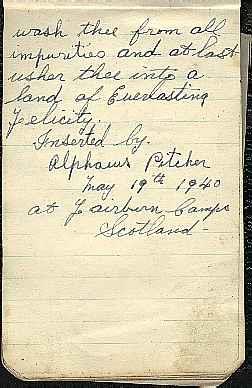 wash thee from all
impurities and at last
usher thee into a
land of Everlasting
Felicity.
Inserted by.
Alphaeus Pitcher
May 19th 1940
at Fairburn Camps
Scotland -